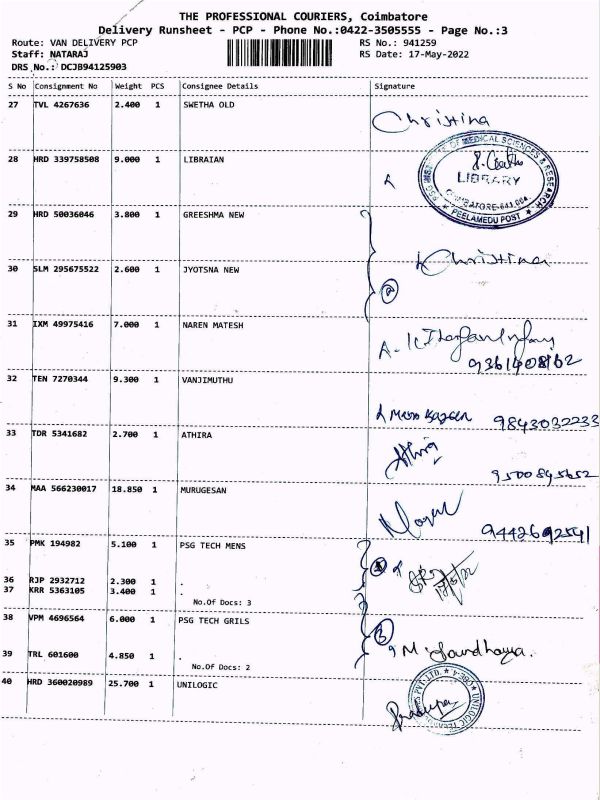 THE PROFESSIONAL COURIERS, Coimbatore
Delivery Runsheet - PCP - Phone No.:0422-3505555 - Page No.:3
Route: VAN DELIVERY PCP RS No.: 941259
Staff: NATARAJ RS Date: 17-May-2022
DRS No.: DCJB94125903
S No Consignment No Weight PCS Consignee Details Signature
27 TVL 4267636 2.400 1 SWETHA OLD
Christina
28 HRD 339758508 9.000 1 LIBRAIAN
MEDICAL SCIENCES & RESEARCH
LIBRARY
PEELAMEDU POST
29 HRD 50036046 3.800 1 GREESHMA NEW
Christina
30 SLM 295675522 2.600 1 JYOTSNA NEW
31 IXM 49975416 7.000 1 NAREN MATESH
32 TEN 7270344 9.300 1 VANJIMUTHU
9843032233
33 TDR 5341682 2.700 1 ATHIRA
Athira
9500845652
34 MAA 566230017 18.850 1 MURUGESAN
9442692541
35 PMK 194982 5.100 1 PSG TECH MENS
36 RJP 2932712 2.300 1 .
37 KRR 5363105 3.400 1 .
No.Of Docs: 3
38 VPM 4696564 6.000 1 PSG TECH GRILS
39 TRL 601600 4.850 1 .
No.Of Docs: 2
40 HRD 360020989 25.700 1 UNILOGIC